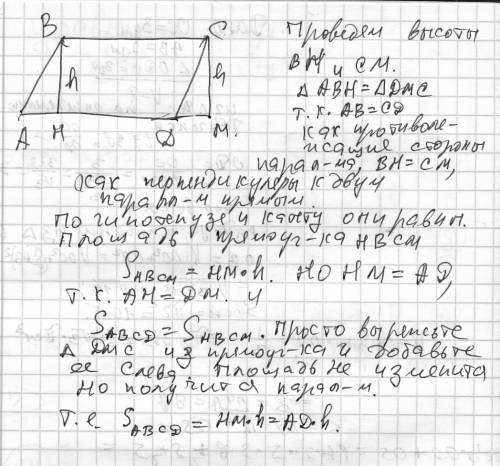 B
C
h
h
A
H
D
M.
Проведем высоты
BH и CM.
Δ ABH = Δ DMC
т. к. AB = CD
как противоле-
жащие стороны
парал-ма, BH = CM,
как перпендикуляры к двум
парал-м прямым.
По гипотенузе и катету они равны.
Площадь прямоуг-ка HBCM
S HBCM = HM·h. НО HM = AD,
т. к. AH = DM. и
S ABCD = S HBCM. Просто вырежьте
Δ DMC из прямоуг-ка и добавьте
ее слева площадь не изменится
Но получится парал-м.
т. е. S ABCD = HM·h = AD·h.